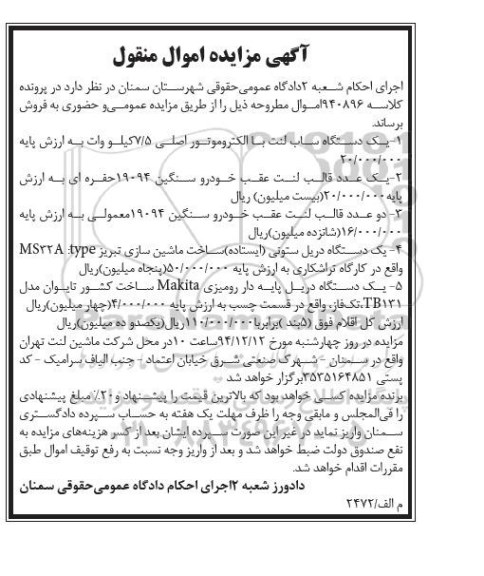 آگهی مزایده اموال منقول
اجرای احکام شعبه ۲دادگاه عمومی‌حقوقی شهرستان سمنان در نظر دارد در پرونده
کلاسه ۹۴۰۸۹۶اموال مطروحه ذیل را از طریق مزایده عمومی‌و حضوری به فروش
برساند.
۱-یک دستگاه ساب لنت با الکتروموتور اصلی ۷/۵کیلو وات به ارزش پایه
۲۰/۰۰۰/۰۰۰
۲-یک عدد قالب لنت عقب خودرو سنگین ۱۹۰۹۴حفره ای به ارزش
پایه۲۰/۰۰۰/۰۰۰(بیست میلیون) ریال
۳- دو عدد قالب لنت عقب خودرو سنگین ۱۹۰۹۴معمولی به ارزش پایه
۱۶/۰۰۰/۰۰۰(شانزده میلیون)ریال
۴- یک دستگاه دریل ستونی (ایستاده)ساخت ماشین سازی تبریز MS۳۲A :type
واقع در کارگاه تراشکاری به ارزش پایه ۵۰/۰۰۰/۰۰۰(پنجاه میلیون)ریال
۵- یک دستگاه دریل پایه دار رومیزی Makita ساخت کشور تایوان مدل
TB۱۳۱،تکفاز، واقع در قسمت چسب به ارزش پایه ۴/۰۰۰/۰۰۰(چهار میلیون)ریال
ارزش کل اقلام فوق (۵بند )برابربا۱۱۰/۰۰۰/۰۰۰ریال(یکصدو ده میلیون)ریال
مزایده در روز چهارشنبه مورخ ۹۴/۱۲/۱۲ساعت ۱۰در محل شرکت ماشین لنت تهران
واقع در سمنان - شهرک صنعتی شرق خیابان اعتماد - جنب الیاف سرامیک - کد
پستی ۳۵۳۵۱۶۴۸۵۱برگزار خواهد شد
برنده مزایده کسی خواهد بود که بالاترین قیمت را پیشنهاد و۲۰٪مبلغ پیشنهادی
را فی‌المجلس و مابقی وجه را ظرف مهلت یک هفته به حساب سپرده دادگستری
سمنان واریز نماید در غیر این صورت سپرده ایشان بعد از کسر هزینه‌های مزایده به
نفع صندوق دولت ضبط خواهد شد و بعد از واریز وجه نسبت به رفع توقیف اموال طبق
مقررات اقدام خواهد شد.
دادورز شعبه ۲اجرای احکام دادگاه عمومی‌حقوقی سمنان
م الف/۲۴۷۲